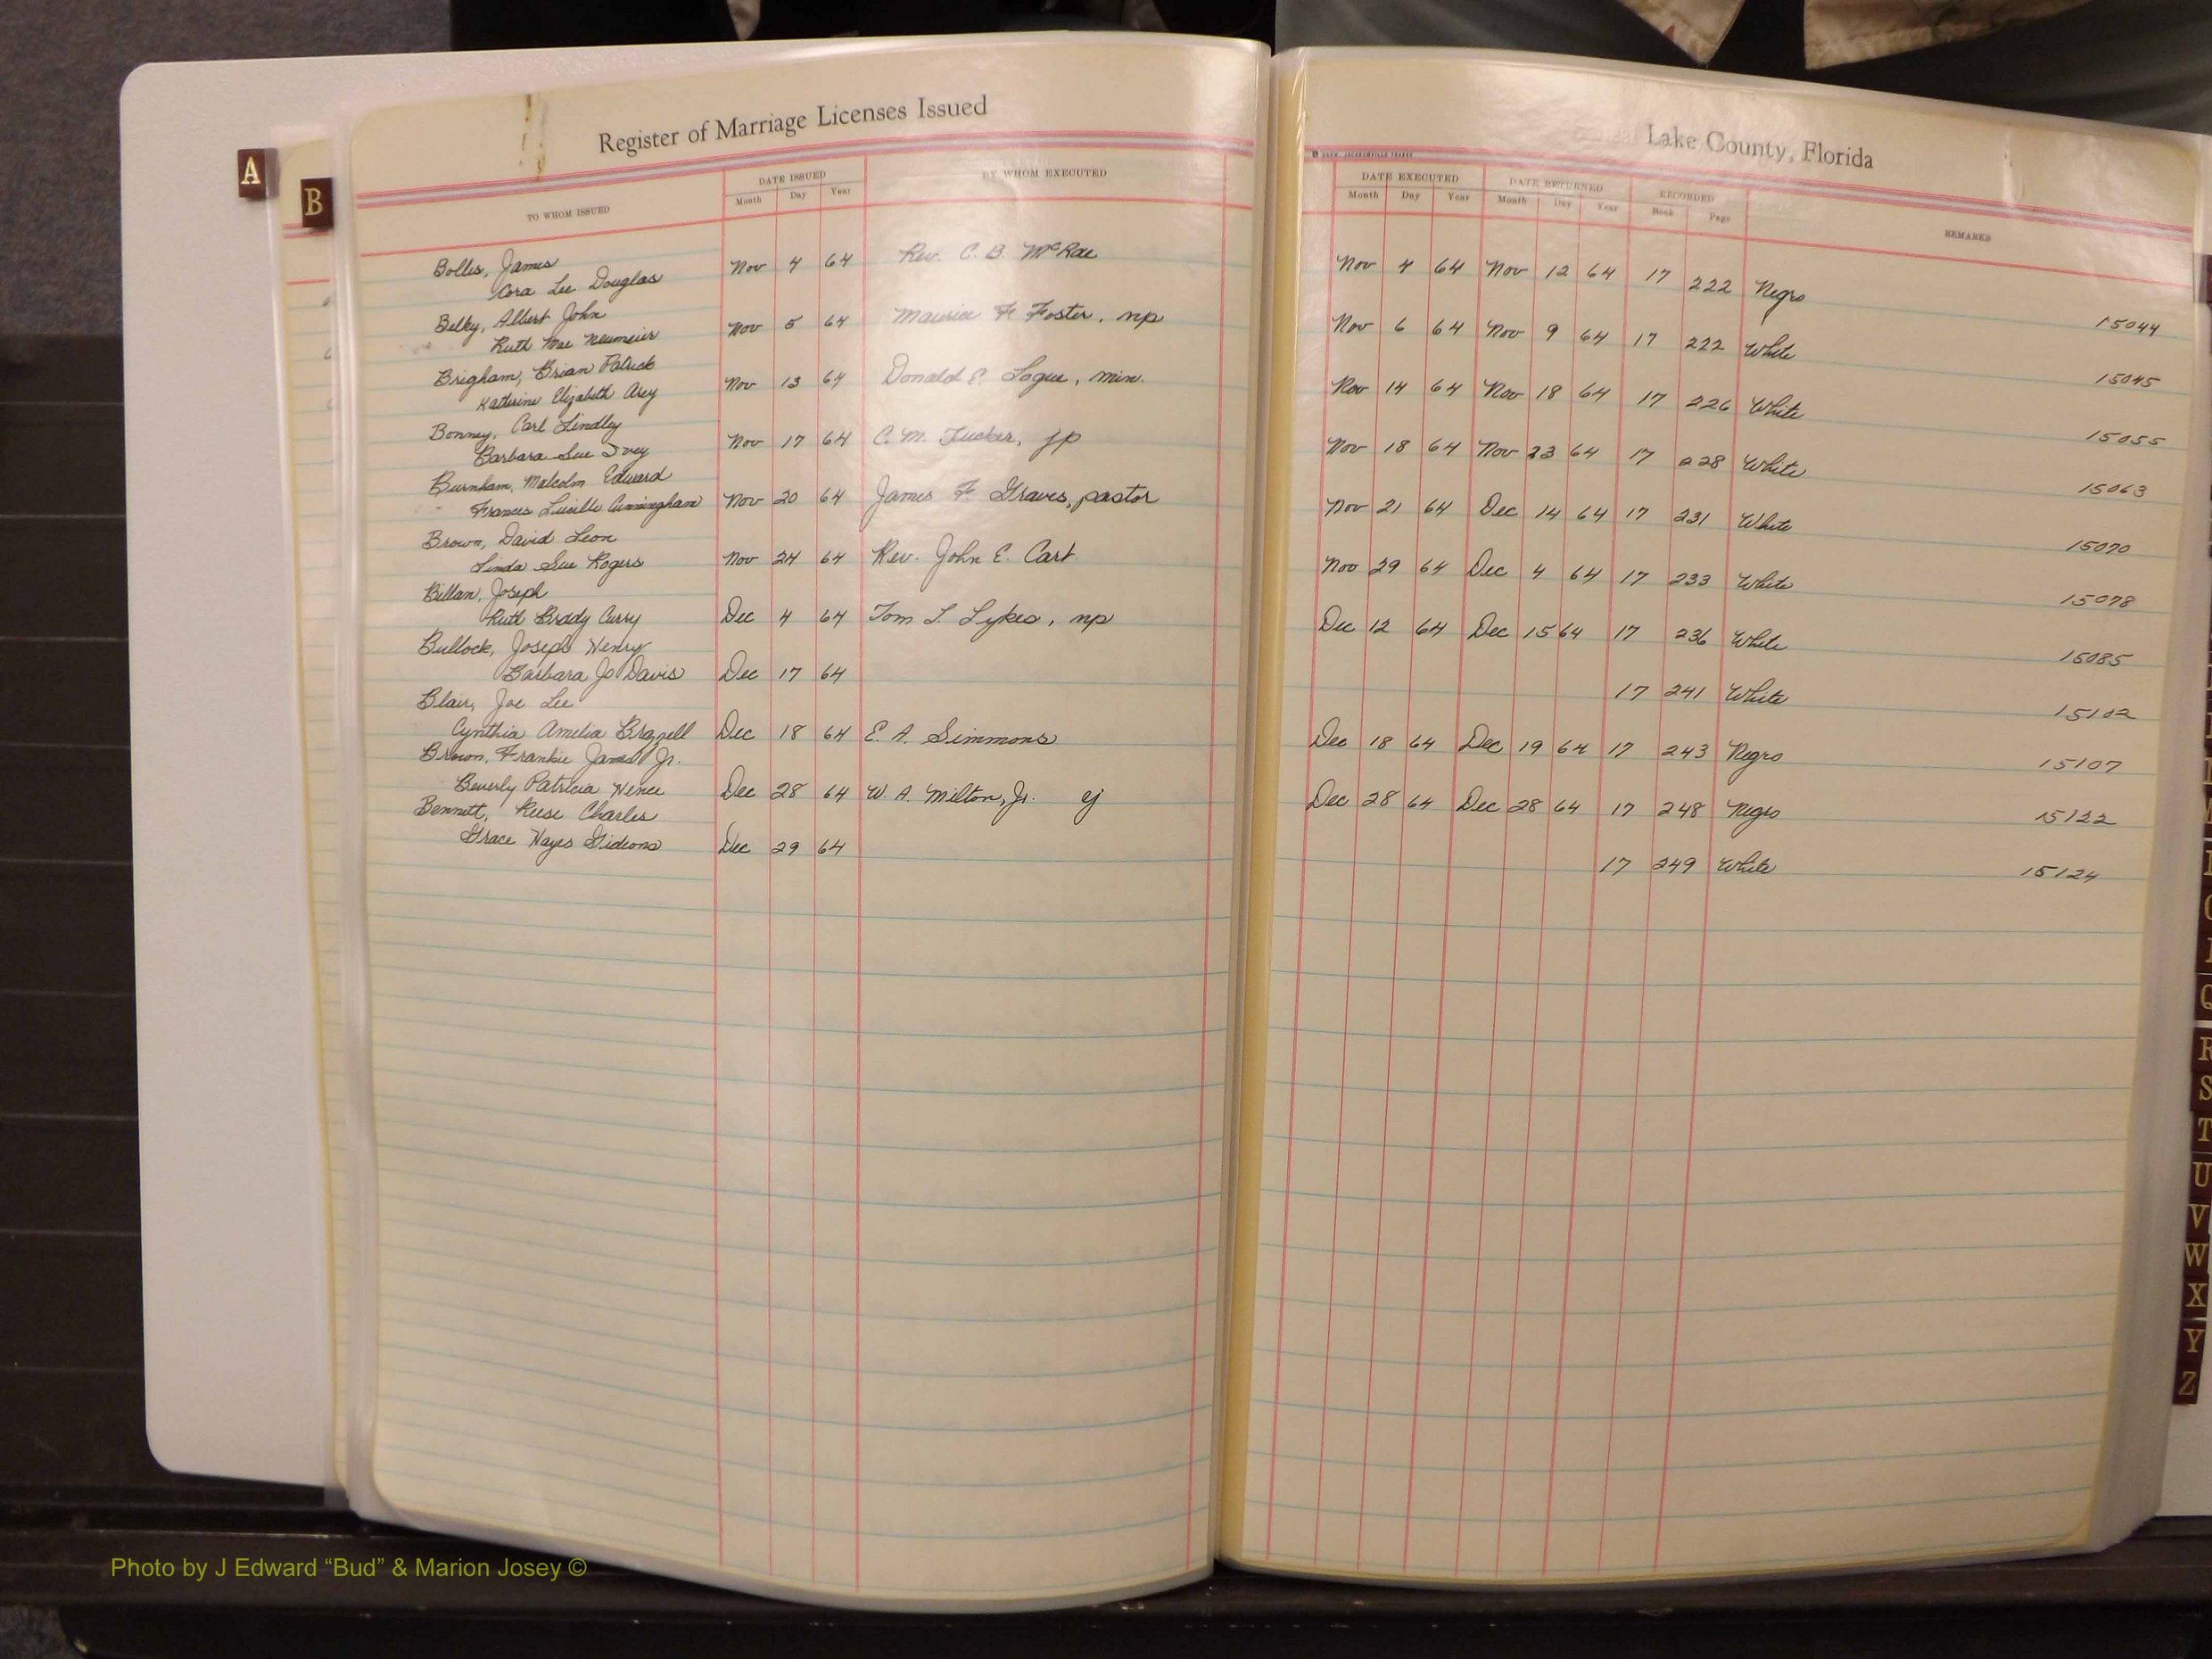 Register of Marriage Licenses Issued
Lake County, Florida
A
B
TO WHOM ISSUED
DATE ISSUED
Month Day Year
BY WHOM EXECUTED
DATE EXECUTED
Month Day Year
DATE RETURNED
Month Day Year
RECORDED
Book Page
REMARKS
Bolles, James
Cora Lee Douglas Nov 4 64 Rev. C. B. McRae Nov 4 64 Nov 12 64 17 222 Negro 15044
Belky, Albert John
Ruth Mae Neumeier Nov 5 64 Maurice F. Foster, np Nov 6 64 Nov 9 64 17 222 White 15045
Brigham, Brian Patrick
Katherine Elizabeth Arey Nov 13 64 Donald E. Logue, min. Nov 14 64 Nov 18 64 17 226 White 15055
Bonney, Carl Lindley
Barbara Sue Ivey Nov 17 64 C. M. Tucker, jp Nov 18 64 Nov 23 64 17 228 White 15063
Burnham, Malcolm Edward
Frances Lucille Cunningham Nov 20 64 James F. Graves, pastor Nov 21 64 Dec 14 64 17 231 White 15070
Brown, David Leon
Linda Sue Rogers Nov 24 64 Rev. John E. Cart Nov 29 64 Dec 4 64 17 233 White 15078
Billan, Joseph
Ruth Brady Curry Dec 4 64 Tom L. Sykes, np Dec 12 64 Dec 15 64 17 236 White 15085
Bullock, Joseph Henry
Barbara Jo Davis Dec 17 64 17 241 White 15102
Blair, Joe Lee
Cynthia Amelia Brazzell Dec 18 64 E. A. Simmons Dec 18 64 Dec 19 64 17 243 Negro 15107
Brown, Frankie James Jr.
Beverly Patricia Hence Dec 28 64 W. A. Milton, Jr. cj Dec 28 64 Dec 28 64 17 248 Negro 15122
Bennett, Reese Charles
Grace Hayes Gideons Dec 29 64 17 249 White 15124
Q
R
S
T
U
V
W
X
Y
Z
Photo by J Edward “Bud” & Marion Josey ©